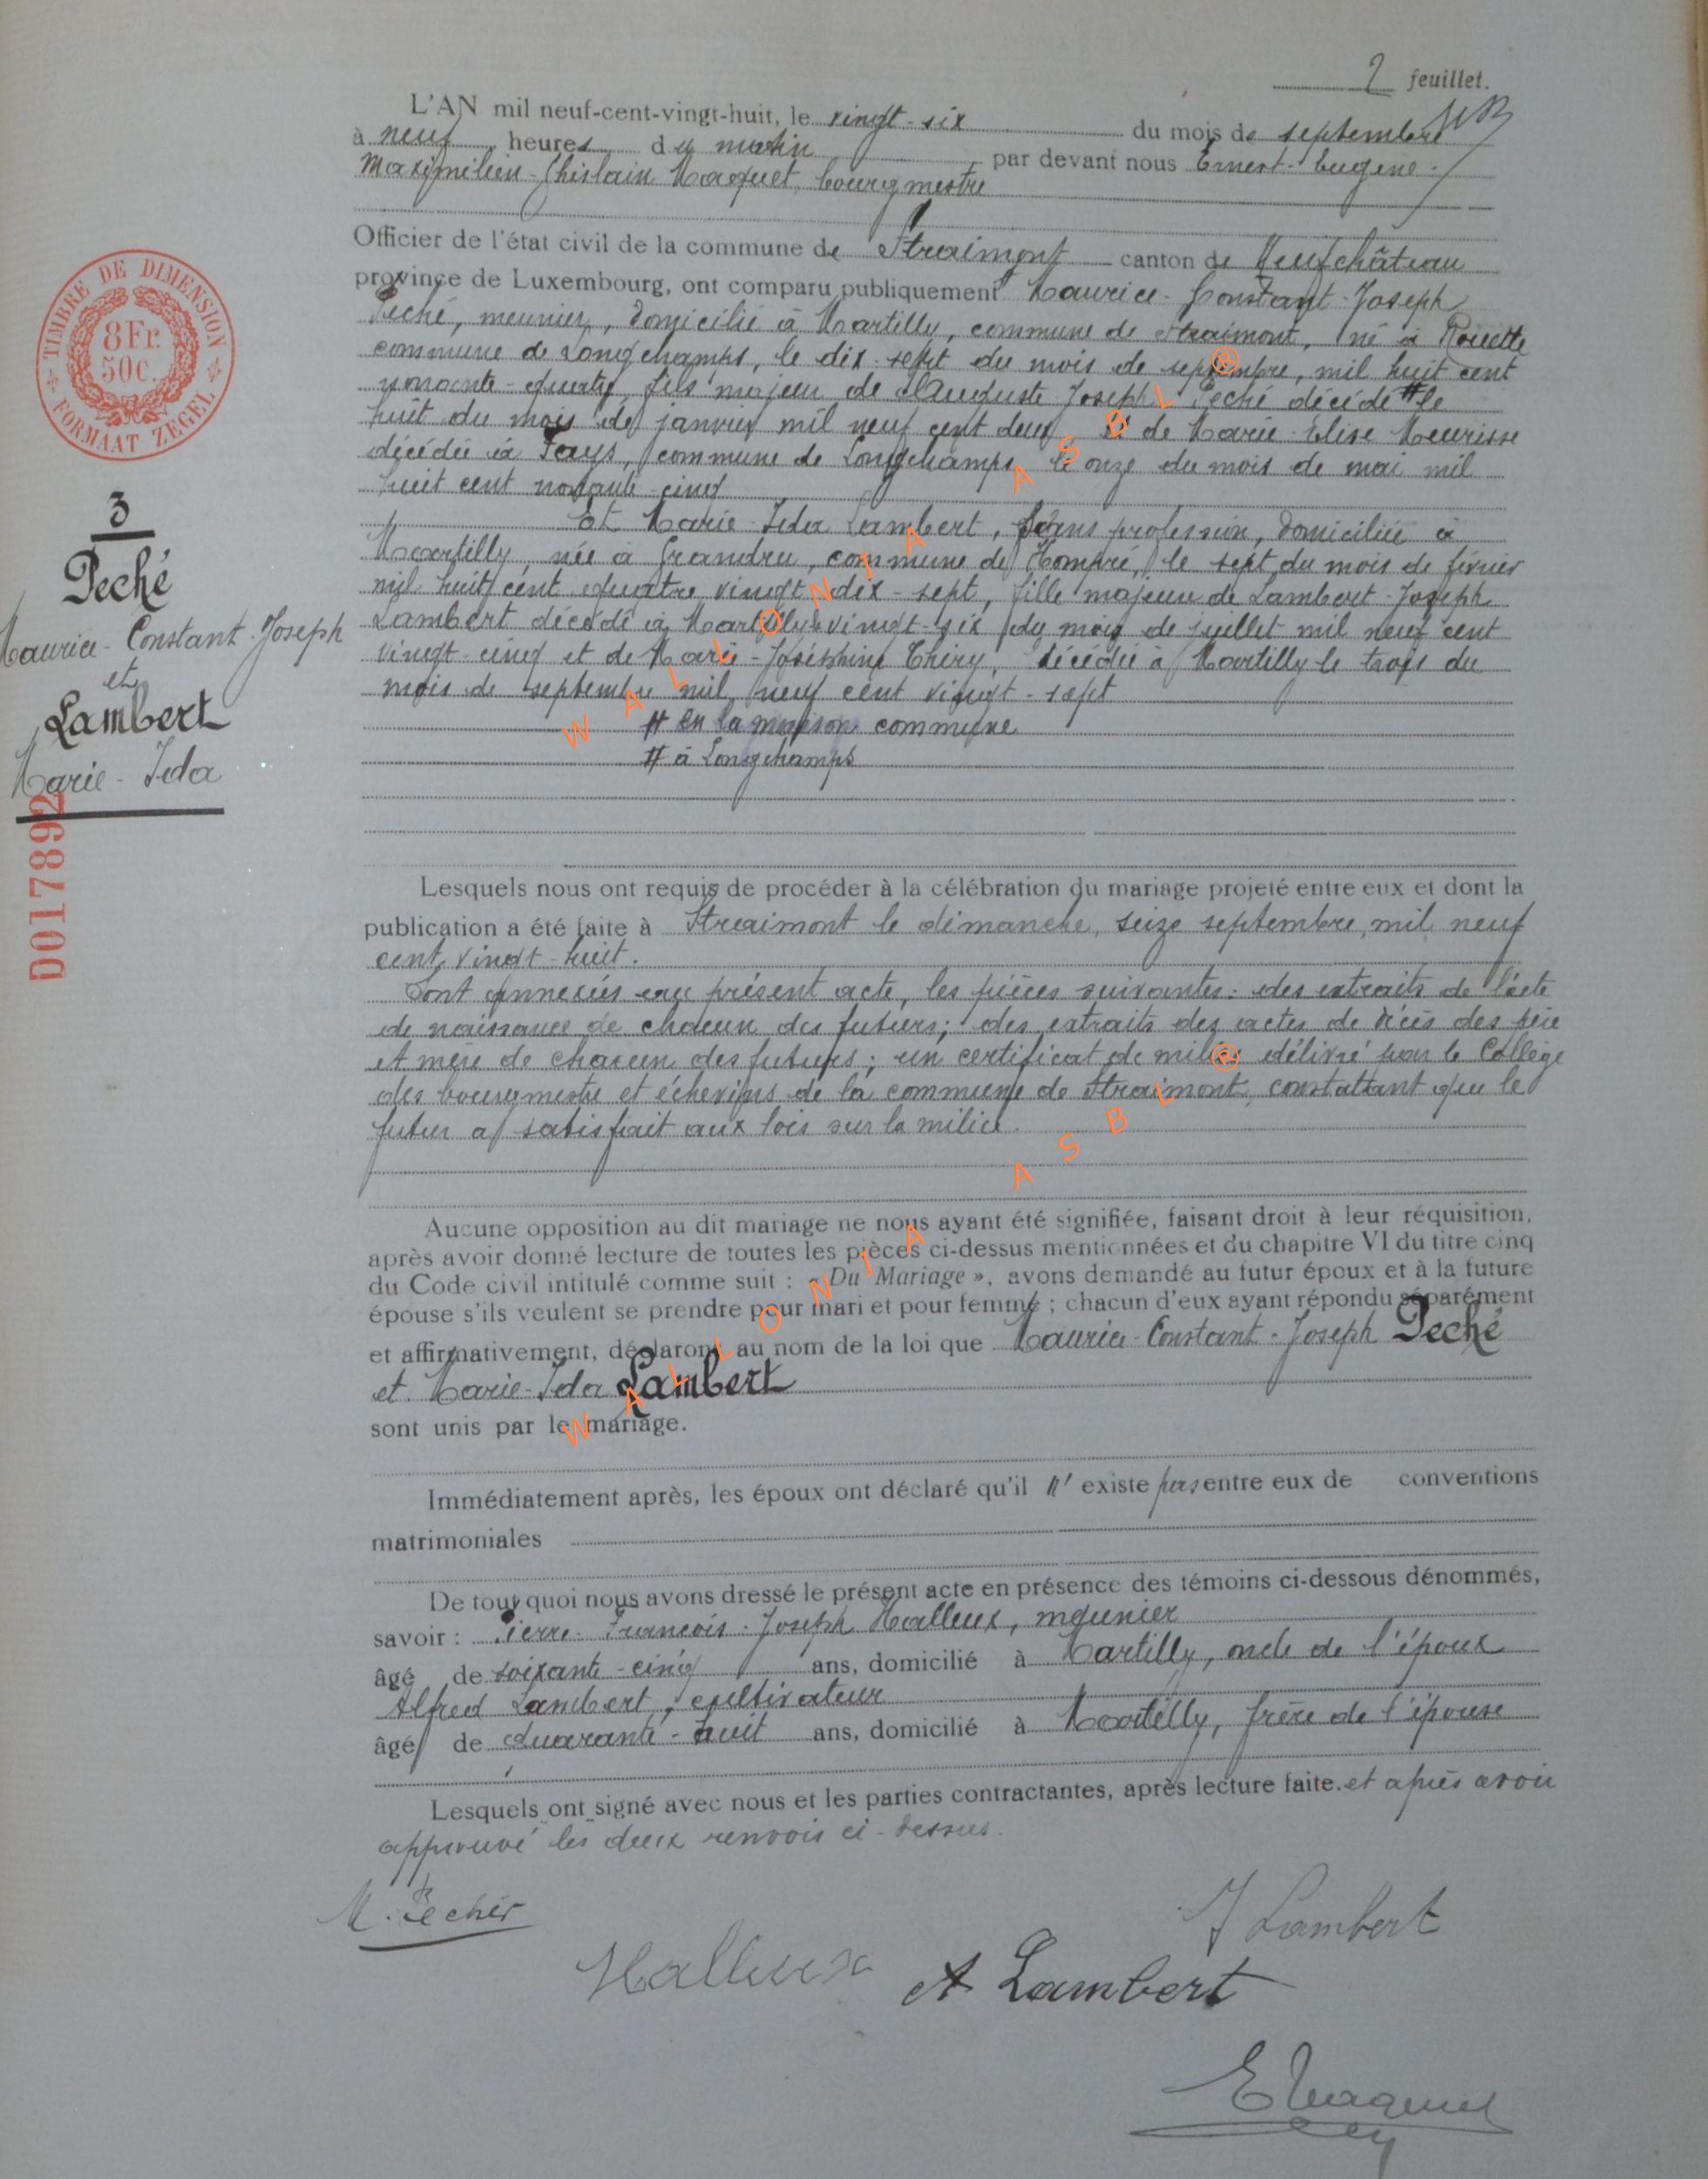 2 feuillet.
L'AN mil neuf-cent-vingt-huit, le vingt-six du mois de septembre
à neuf heures du matin par devant nous Ernest-Eugène-
Maximilien-Ghislain Maquet, bourgmestre
Officier de l'état civil de la commune de Straimont canton de Neufchâteau
province de Luxembourg, ont comparu publiquement Maurice-Constant-Joseph
Peché, meunier, domicilié à Martilly, commune de Straimont, né à Rouette
commune de Longchamps, le dix-sept du mois de septembre, mil huit cent
nonante-quatre, fils majeur de Auguste Joseph Peché décédé # le
huit du mois de janvier mil neuf cent deux et de Marie-Elise Meurisse
décédée à Fays, commune de Longchamps le onze du mois de mai mil
huit cent nonante-cinq
Et Marie-Ida Lambert, sans profession, domiciliée à
Martilly, née à Grandru, commune de Hompré, le sept du mois de février
mil huit cent quatre vingt dix-sept, fille majeure de Lambert-Joseph
Lambert décédé à Martilly le vingt-six du mois de juillet mil neuf cent
vingt-cinq et de Marie-Joséphine Thiry, décédée à Martilly le trois du
mois de septembre mil neuf cent vingt-sept
# en la maison commune
# à Longchamps
TIMBRE DE DIMENSION
8Fr.
50c.
FORMAAT ZEGEL
3
Peché
Maurice-Constant-Joseph
et
Lambert
Marie-Ida
D017892
Lesquels nous ont requis de procéder à la célébration du mariage projeté entre eux et dont la
publication a été faite à Straimont le dimanche, seize septembre, mil neuf
cent vingt-huit.
Sont annexées au présent acte, les pièces suivantes: des extraits de l'acte
de naissance de chacun des futurs; des extraits des actes de décès des père
et mère de chacun des futurs; un certificat de milice délivré par le Collège
des bourgmestre et échevins de la commune de Straimont, constatant que le
futur a satisfait aux lois sur la milice.
Aucune opposition au dit mariage ne nous ayant été signifiée, faisant droit à leur réquisition,
après avoir donné lecture de toutes les pièces ci-dessus mentionnées et du chapitre VI du titre cinq
du Code civil intitulé comme suit : « Du Mariage », avons demandé au futur époux et à la future
épouse s'ils veulent se prendre pour mari et pour femme ; chacun d'eux ayant répondu séparément
et affirmativement, déclarons au nom de la loi que Maurice-Constant-Joseph Peché
et Marie-Ida Lambert
sont unis par le mariage.
Immédiatement après, les époux ont déclaré qu'il n'existe pas entre eux de conventions
matrimoniales
De tout quoi nous avons dressé le présent acte en présence des témoins ci-dessous dénommés,
savoir : Pierre-François-Joseph Halleux, meunier
âgé de soixante-cinq ans, domicilié à Martilly, oncle de l'époux
Alfred Lambert, cultivateur
âgé de quarante-huit ans, domicilié à Martilly, frère de l'épouse
Lesquels ont signé avec nous et les parties contractantes, après lecture faite. et après avoir
approuvé les deux renvois ci-dessus.
M. Pecher
I Lambert
Halleux
A Lambert
E Maquet
WALLONIA ASBL ®
WALLONIA ASBL ®